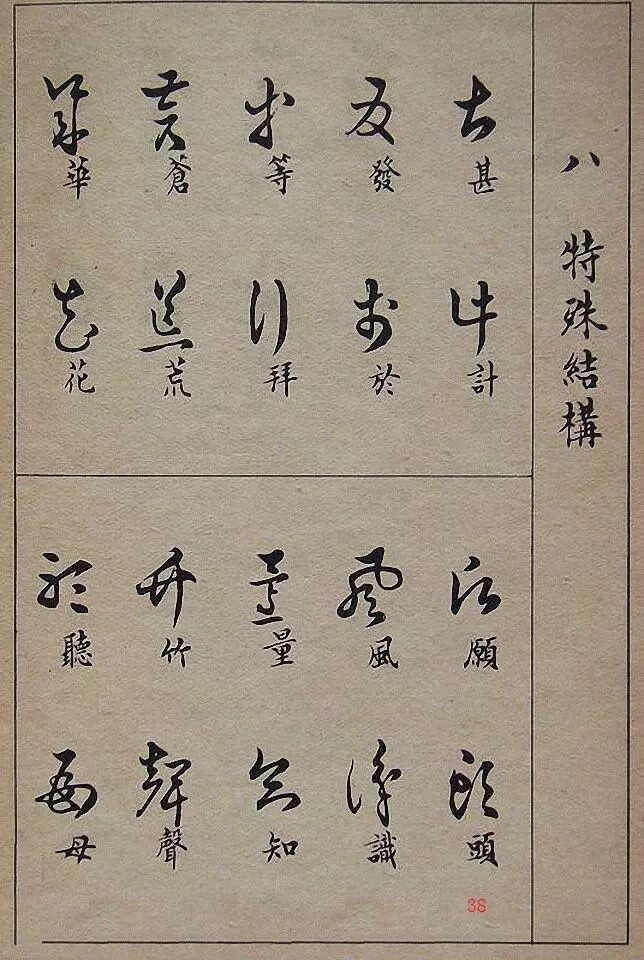 八 特殊結構
甚 計
發 於
等 拜
蒼 荒
華 花
願 頭
風 識
量 知
竹 聲
聽 母
38